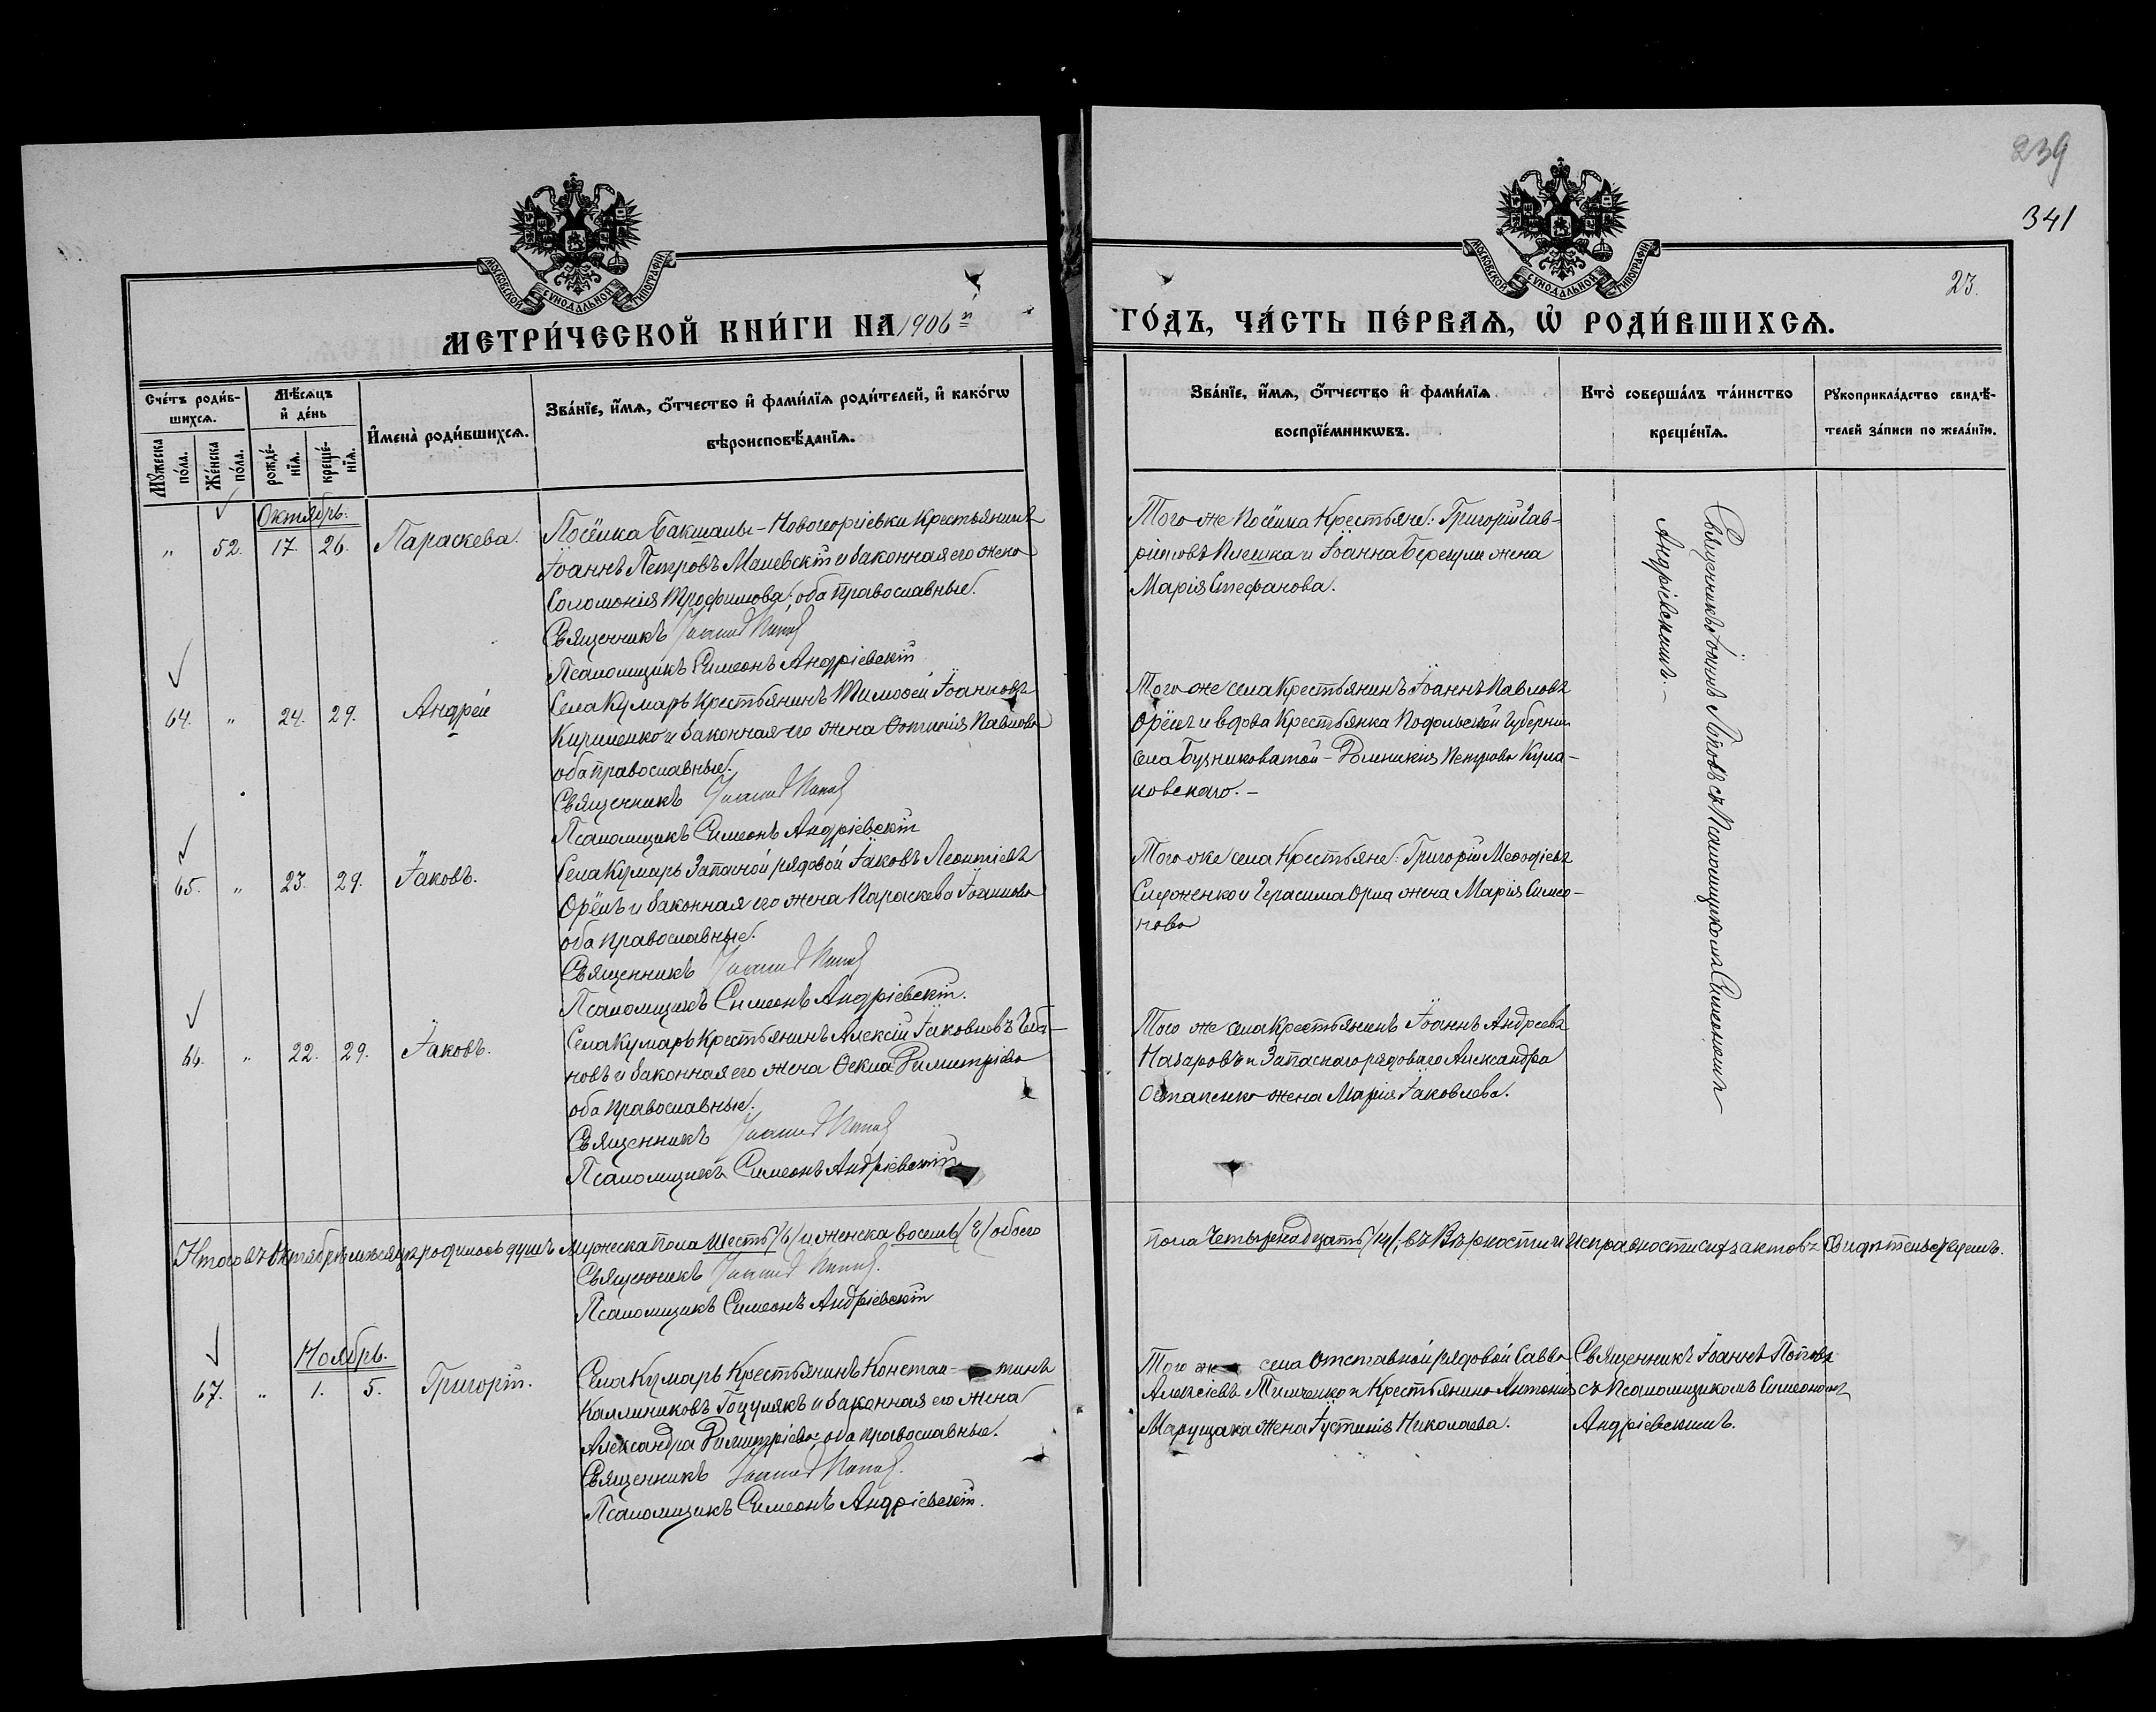 239
341
23.
МОСКОВСКОЙ СУНОДАЛЬНОЙ ТИПОГРАФІИ
МОСКОВСКОЙ СУНОДАЛЬНОЙ ТИПОГРАФІИ
МЕТРИ́ЧЕСКОЙ КНИ́ГИ НА 1906й
ГО́ДЪ, ЧА́СТЬ ПЕ́РВАѦ, Ѡ҆ РОДИ́ВШИХСѦ.
Сче́тъ роди́в-
шихсѧ.
Мѣ́сѧцъ
и҆ де́нь
Мꙋ́жеска
по́ла.
Же́нска
по́ла.
рожде́-
нїѧ.
креще́-
нїѧ.
И҆мена̀ роди́вшихсѧ.
Зва́нїе, и҆́мѧ, ѻ҆́тчество и҆ фами́лїѧ роди́телей, и҆ како́гѡ
вѣроисповѣ́данїѧ.
Зва́нїе, и҆́мѧ, ѻ҆́тчество и҆ фами́лїѧ
воспрїе́мникѡвъ.
Кто̀ соверша́лъ та́инство
креще́нїѧ.
Рꙋкоприкла́дство свидѣ́-
телей за́писи по жела́нїю.
Октябрь:
" 52. 17. 26. Параскева.
Посёлка Бакшалы-Новогеоргіевки Крестьянинъ
Іоаннъ Петровъ Малевскій и законная его жена
Соломонія Трофимова; оба православные.
Священникъ Іоаннъ Поповъ
Псаломщикъ Симеонъ Андріевскій
Того же Посёлка Крестьяне: Григорій Гав-
ріиловъ Плешка и Іоанна жена
Марія Стефанова.
Священникъ Іоаннъ Поповъ съ Псаломщикомъ Симеономъ
Андріевскимъ.-
64. " 24. 29. Андрей
Села Кумаръ Крестьянинъ Тимоѳей Іоанновъ
Кириленко и законная его жена Павлова
оба православные.
Священникъ Іоаннъ Поповъ
Псаломщикъ Симеонъ Андріевскій
Того же села Крестьянинъ Іоаннъ Павловъ
Орёлъ и вдова Крестьянка Подольской Губерніи
села Бузниковатой - Домникія Петрова Кула-
ковскаго.-
65. " 23. 29. Іаковъ.
Села Кумаръ Запасной рядовой Іаковъ Леонтіевъ
Орёлъ и законная его жена Параскева Іоаннова
оба православные.
Священникъ Іоаннъ Поповъ
Псаломщикъ Симеонъ Андріевскій.
Того же села Крестьяне: Григорій Меѳодіевъ
и Герасима Орла жена Марія Симео-
нова
66. " 22. 29. Іаковъ.
Села Кумаръ Крестьянинъ Алексій Іаковлевъ
новъ и законная его жена Димитріева
оба православные.
Священникъ Іоаннъ Поповъ
Псаломщикъ Симеонъ Андріевскій
Того же села Крестьянинъ Іоаннъ Андреевъ
Назаровъ и Запаснаго рядоваго Александра
Остапенко жена Марія Іаковлева.
Итого въ Октябрѣ мѣсяцѣ родилось душъ мужеска пола шесть /6/ и женска восемь /8/ обоего
пола четырнадцать /14/, въ Вѣрности и исправности сихъ актовъ Свидѣтельствуемъ.
Священникъ Іоаннъ Поповъ.
Псаломщикъ Симеонъ Андріевскій
Ноябрь.
67. " 1. 5. Григорій.
Села Кумаръ Крестьянинъ Констан-тинъ
Каллиниковъ Гоцулякъ и законная его жена
Александра Димитріева оба православные.
Священникъ Іоаннъ Поповъ.
Псаломщикъ Симеонъ Андріевскій.
Того же села Отставной рядовой Савва
Алексіевъ Тимченко и Крестьянина Антонія
Марущака жена Іустинія Николаева.
Священникъ Іоаннъ Поповъ
съ Псаломщикомъ Симеономъ
Андріевскимъ.